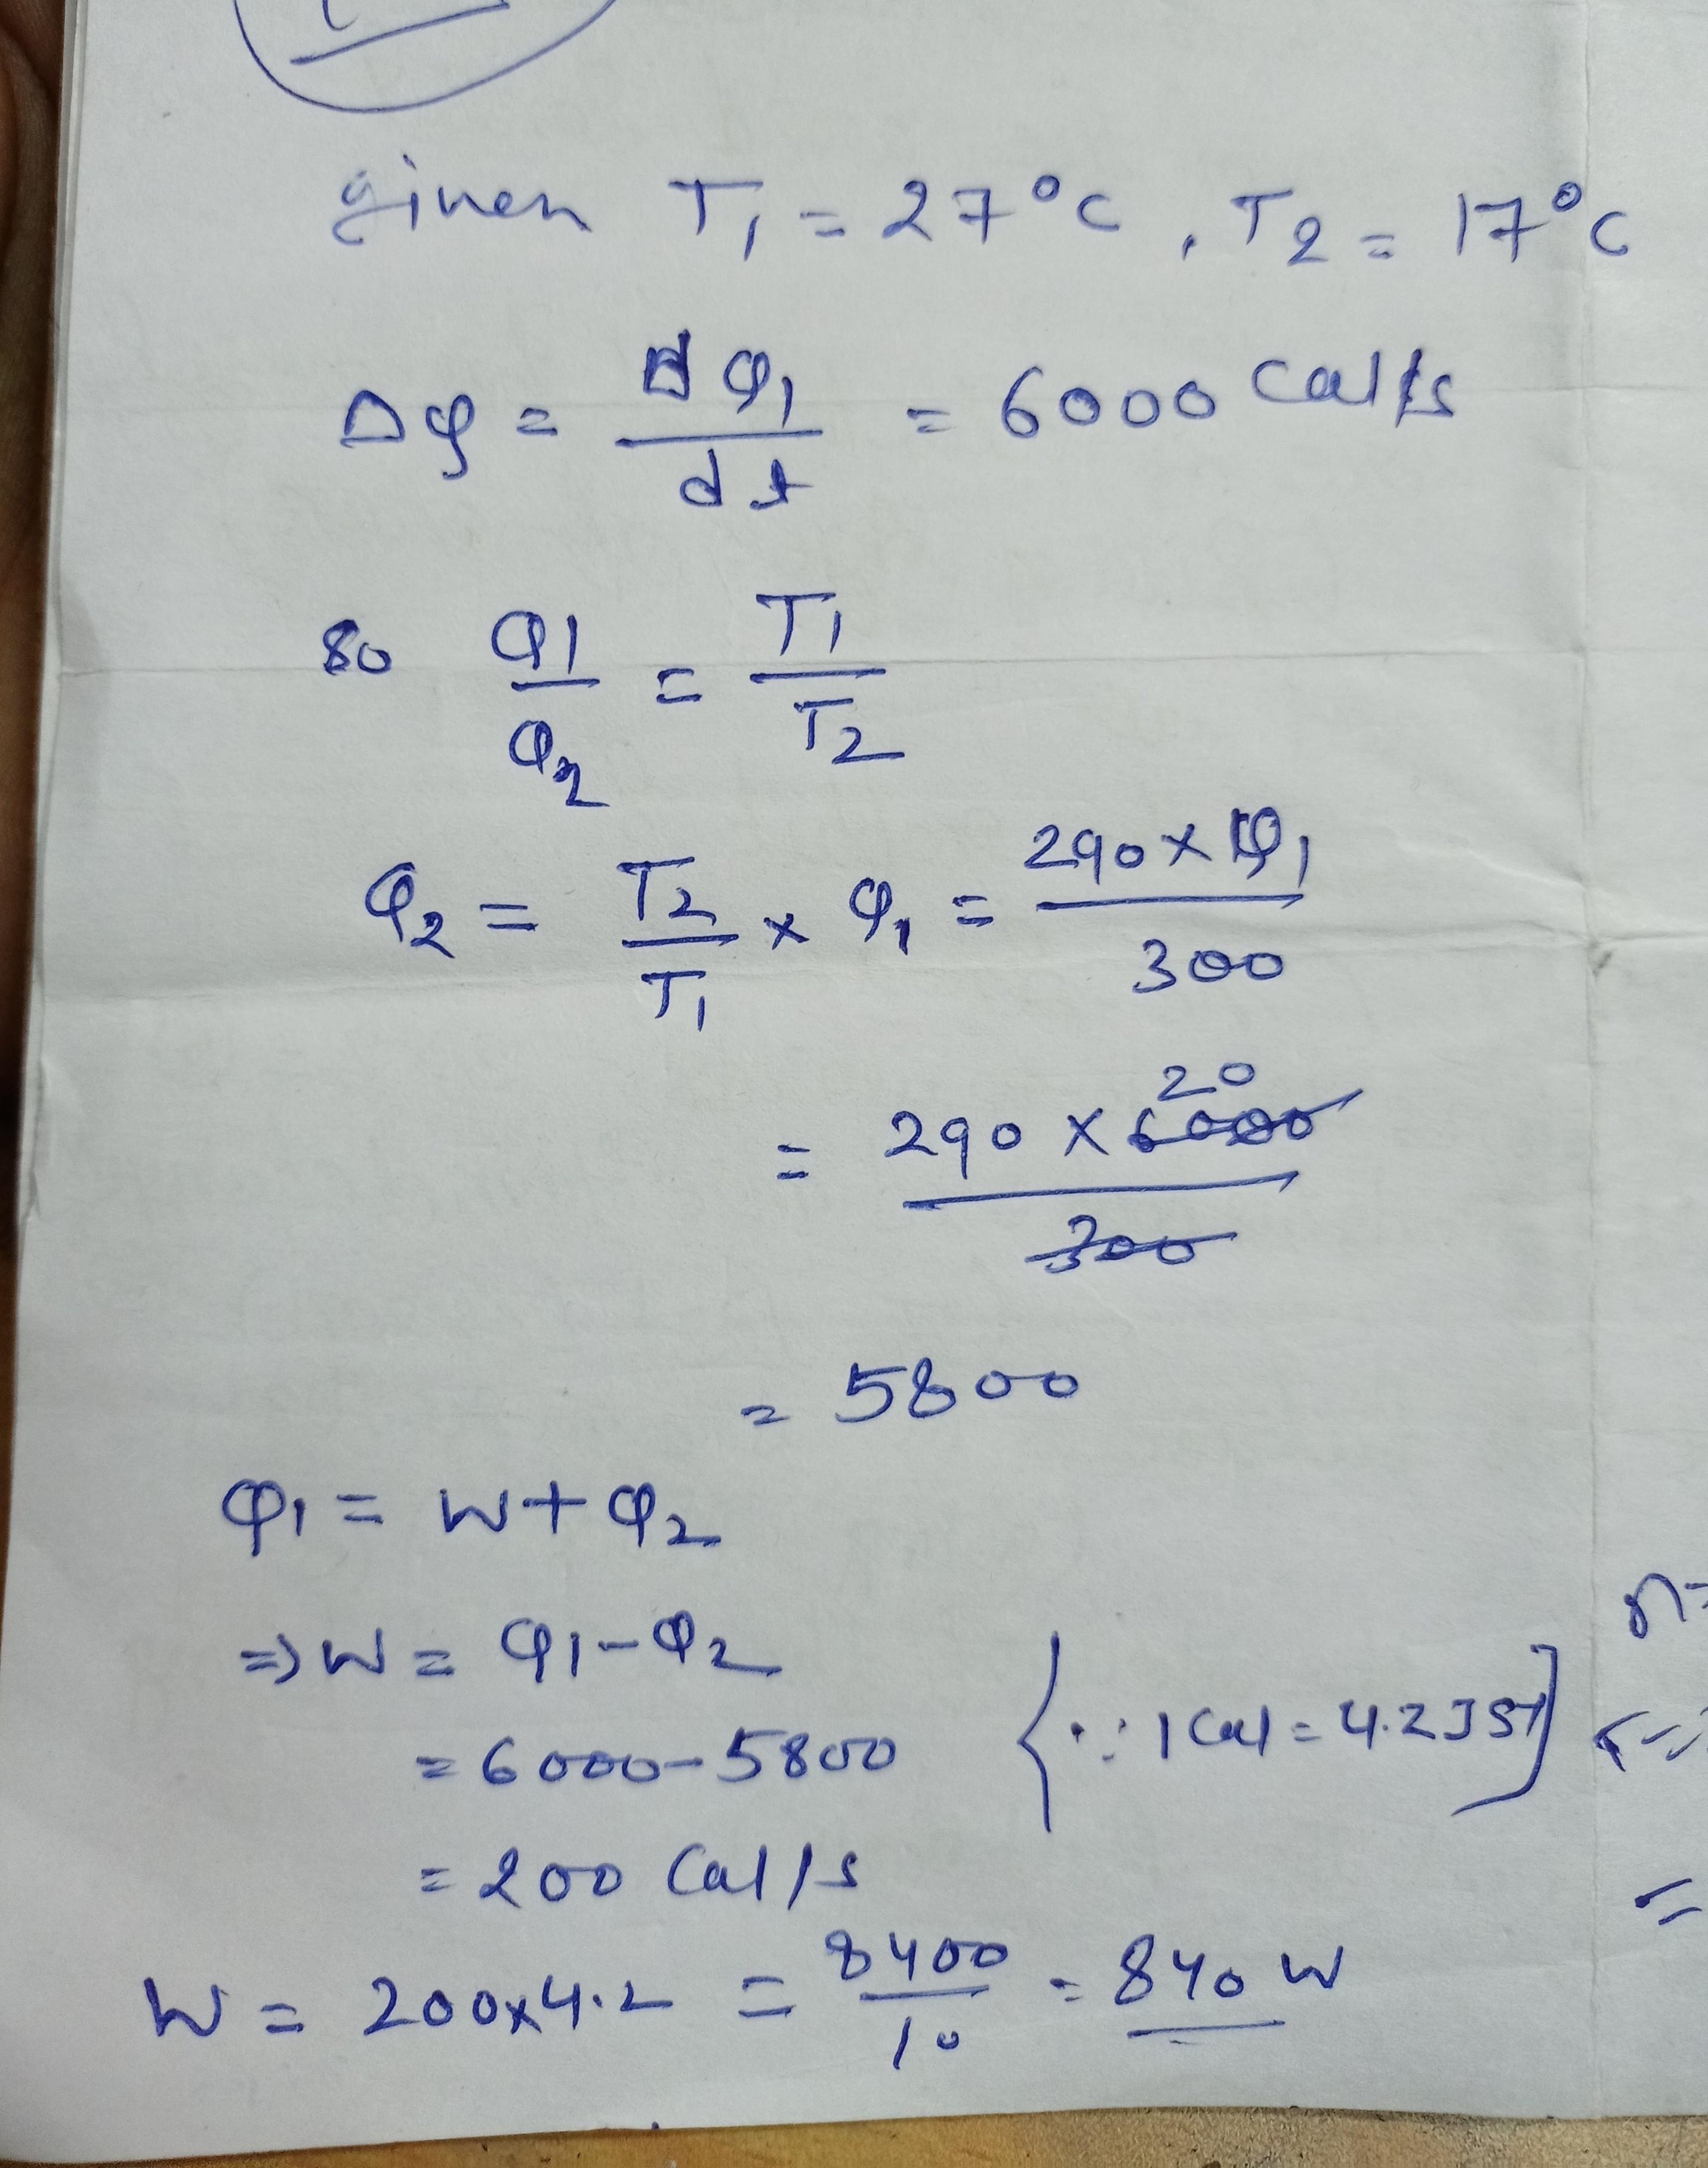 given T₁ = 27°C, T₂ = 17°C
ΔQ = dQ₁/dt = 6000 Cal/s
So Q1/Q2 = T1/T2
Q2 = T2/T1 × Q1 = 290 × Q1/300
= 290 × 6000/300 20
= 5800
Q1 = W + Q2
⇒ W = Q1 - Q2
= 6000 - 5800 {∵ 1 Cal = 4.2 J
= 200 Cal/s
W = 200×4.2 = 8400/10 = 840 W